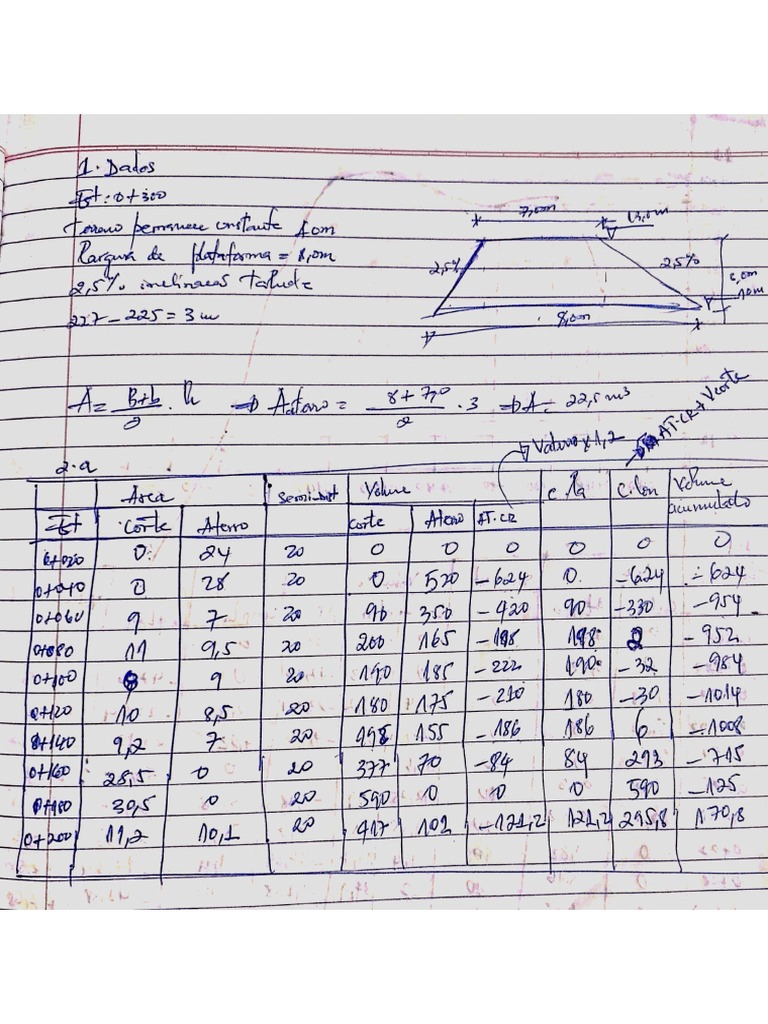 1. Dados
Est: 0+300
Terreno permanece constante 10m
Largura de plataforma = 8,0m
2,5% inclinacas Talude
227 - 225 = 3m
7,0m
2,5%
2,5%
8,0m
A = B+b/2 . h => Aaterro = 8+7,0/2 . 3 => A = 22,5 m3
Vaterro x 1,2
AT.CR + Vcorte
2.a
Area Semi.dist Volume c. la c. lon Volume acumulado
Est Corte Aterro corte Aterro AT.CR
0+020 0 24 20 0 0 0 0 0 0
0+040 0 28 20 0 520 -624 0 -624 -624
0+060 9 7 20 90 350 -420 90 -330 -954
0+080 11 9,5 20 200 165 -198 198 2 -952
0+100 9 20 190 185 -222 190 -32 -984
0+120 10 8,5 20 180 175 -210 180 -30 -1014
0+140 9,2 7 20 198 155 -186 186 6 -1008
0+160 28,5 0 20 377 70 -84 84 293 -715
0+180 30,5 0 20 590 0 0 0 590 -125
0+200 11,2 10,1 20 417 101 -121,2 121,2 295,8 170,8